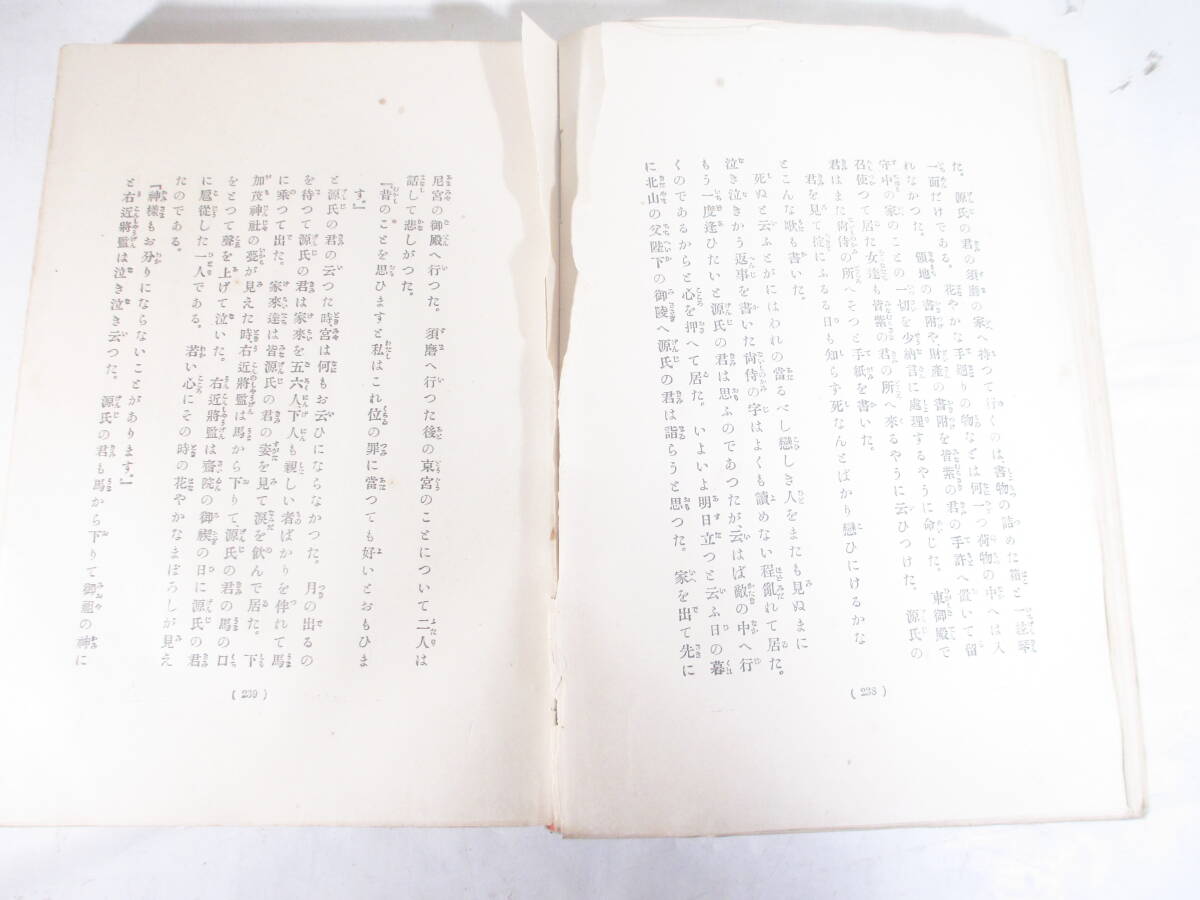 た。源氏の君の須磨の家へ持つて行くのは書物の詰めた箱と一絃琴
一面だけである。花やかな手廻りの物などは何一つ荷物の中へは入
れなかつた。領地の書附や財產の書附を皆紫の君の手許へ置いて留
守中の家のことの一切を少納言に處理するやうに命じた。東御殿で
召使つて居た女達も皆紫の君の所へ來るやうに云ひつけた。源氏の
君はまた尙侍の所へそつと手紙を書いた。
君を見て徃にふる日も知らず死なんとばかり戀ひにけるかな
とこんな歌も書いた。
死ぬと云ふとがにはわれの當るべし戀しき人をまたも見ぬまに
泣き泣きかう返事を書いた尙侍の字はよくも讀めない程亂れて居た。
もう一度逢ひたいと源氏の君は思ふのであつたが、云はば敵の中へ行
くのであるからと心を押へて居た。いよいよ明日立つと云ふ日の暮
に北山の父陛下の御陵へ源氏の君は詣らうと思つた。家を出て先に
( 238 )
尼宮の御殿へ行つた。須磨へ行つた後の東宮のことについて二人は
話して悲しがつた。
『昔のことを思ひますと私はこれ位の罪に當つても好いとおもひま
す。』
と源氏の君の云つた時、宮は何もお云ひにならなかつた。月の出るの
を待つて源氏の君は家來を五六人下人も親しい者ばかりを伴れて馬
に乘つて出た。家來達は皆源氏の君の姿を見て淚を飮んで居た。下
加茂神社の甍が見えた時、右近將監は馬から下りて、源氏の君の馬の口
をとつて聲を上げて泣いた。右近將監は齋院の御禊の日に源氏の君
に扈從した一人である。若い心にその時の花やかなまぼろしが見え
たのである。
『神樣もお分りにならないことがあります。』
と右近將監は泣き泣き云つた。源氏の君も馬から下りて御祖の神に
( 239 )